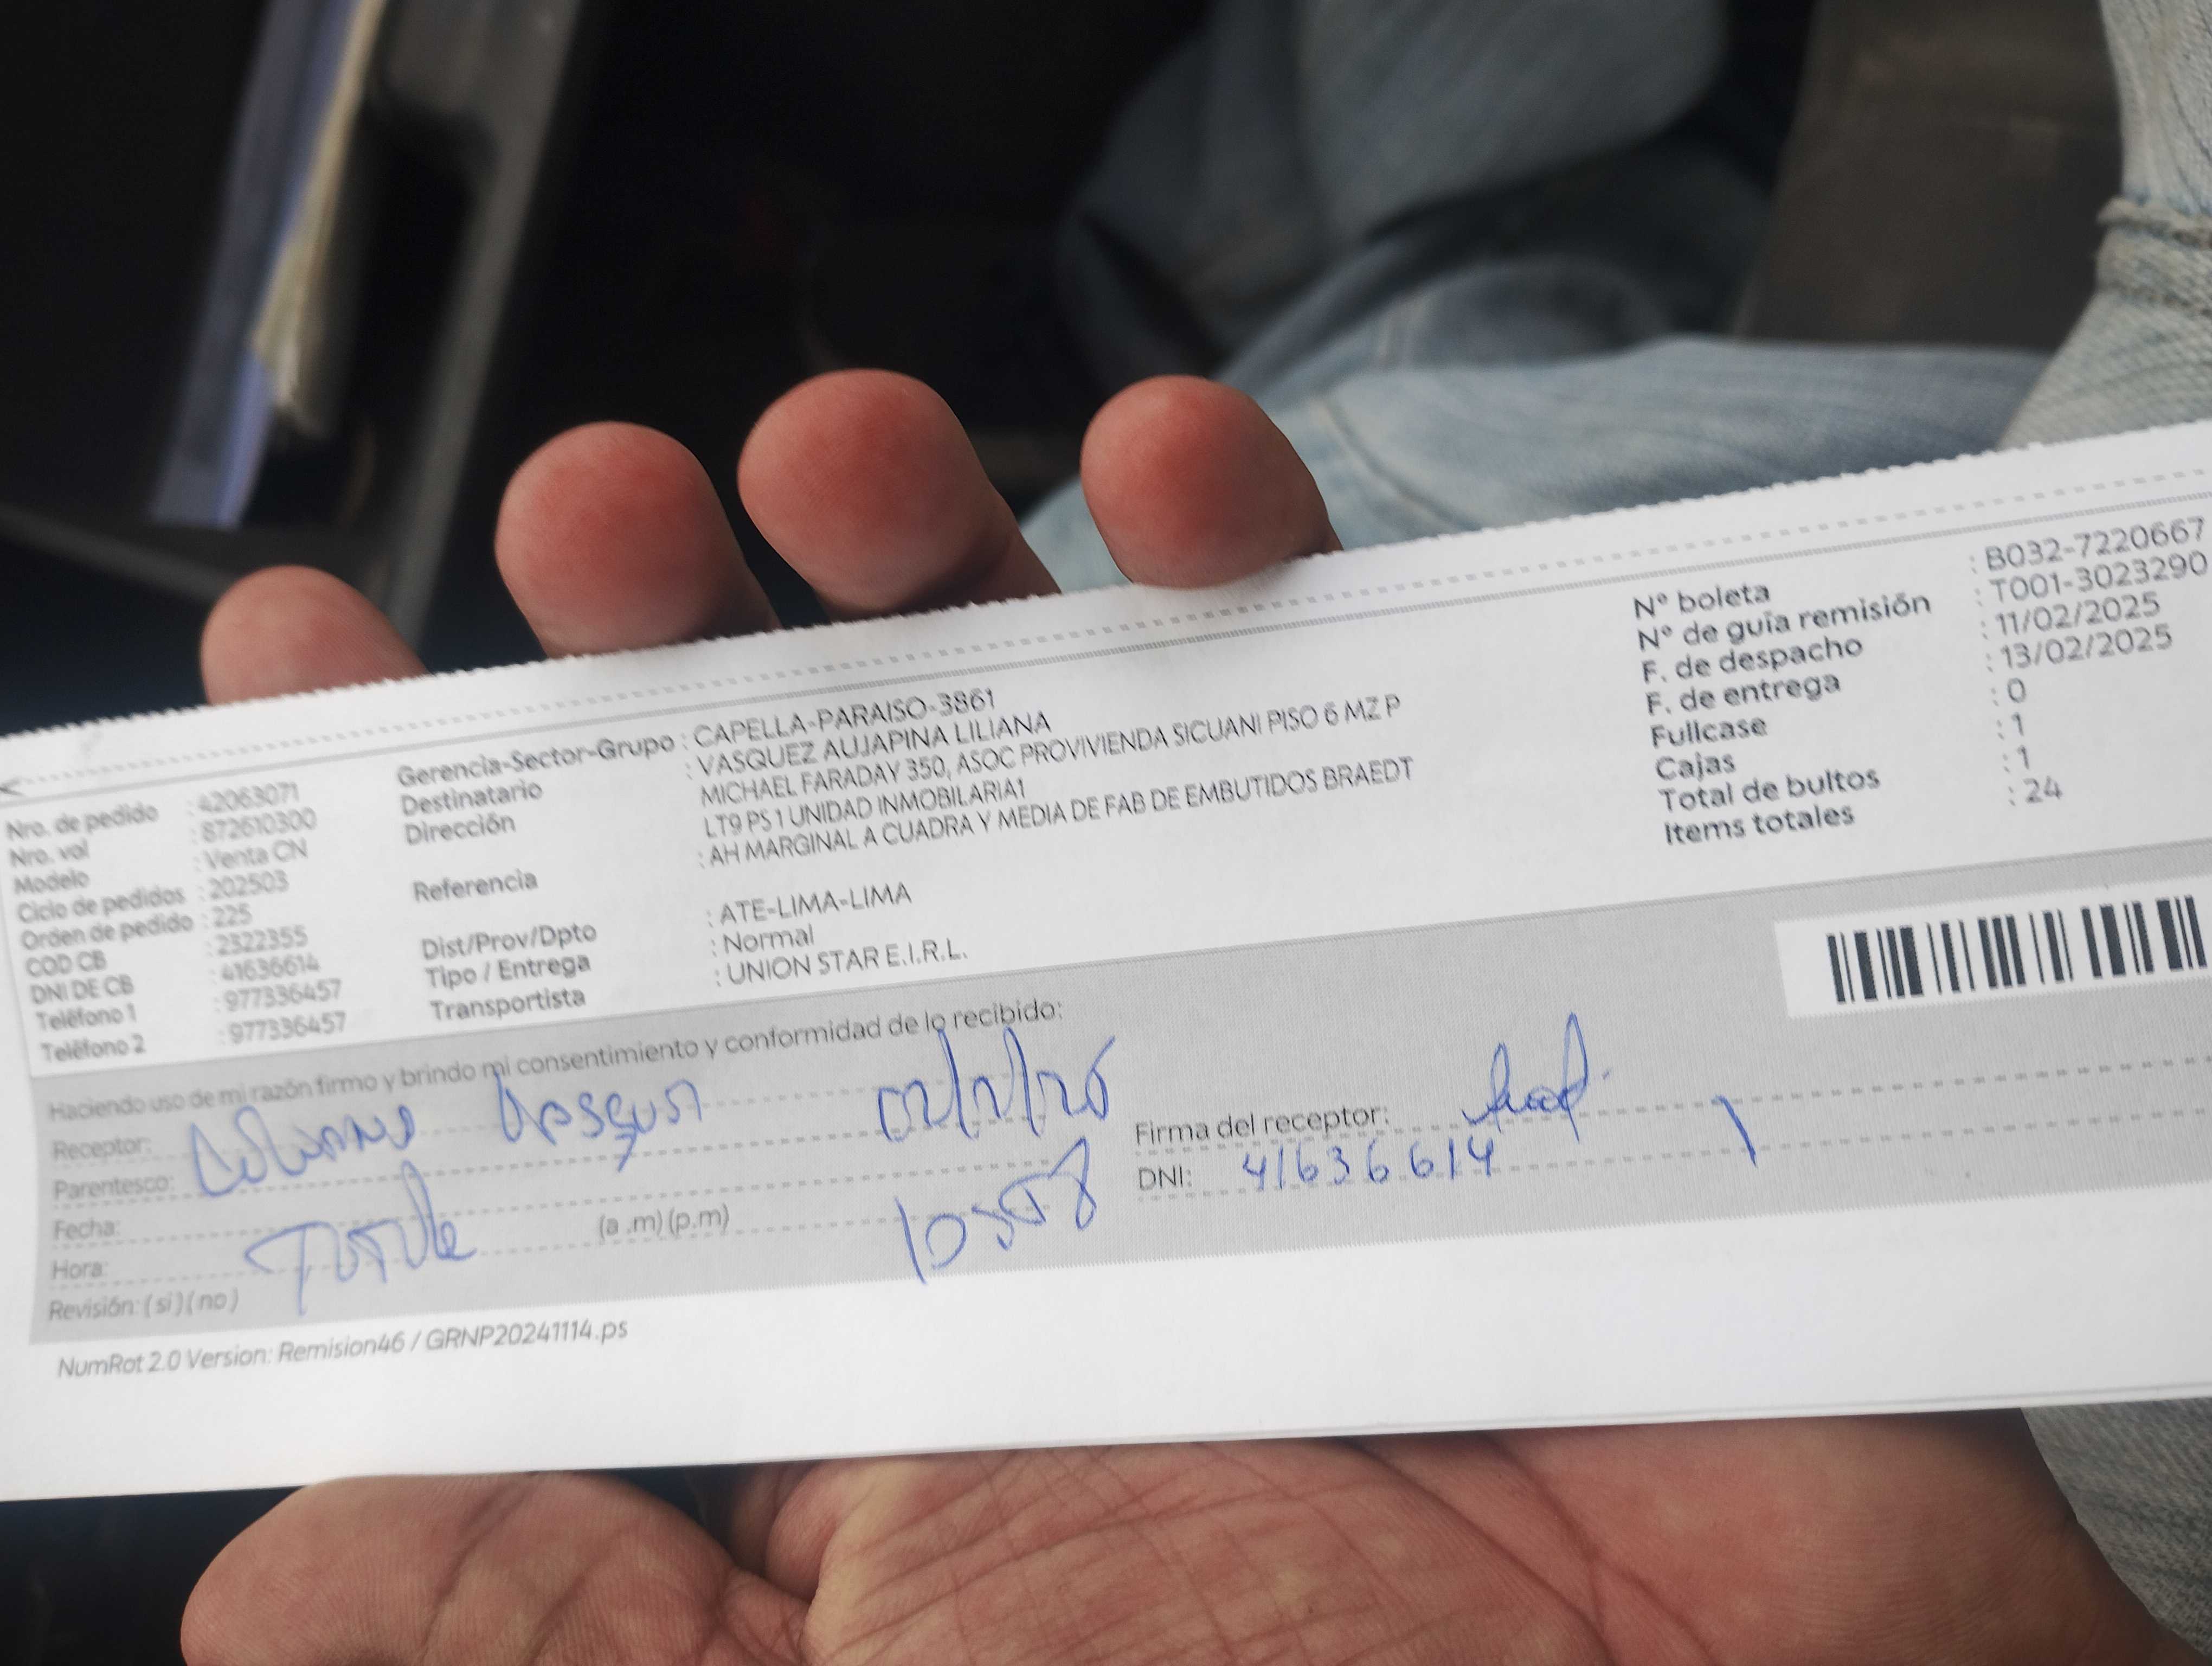 Nro. de pedido : 42063071
Nro. vol : 872610300
Modelo : Venta CN
Ciclo de pedidos : 202503
Orden de pedido : 225
COD CB : 2322355
DNI DE CB : 41636614
Teléfono 1 : 977336457
Teléfono 2 : 977336457
Gerencia-Sector-Grupo : CAPELLA-PARAISO-3861
Destinatario : VASQUEZ AUJAPINA LILIANA
Dirección MICHAEL FARADAY 350, ASOC PROVIVIENDA SICUANI PISO 6 MZ P
LT9 PS 1 UNIDAD INMOBILARIA1
Referencia : AH MARGINAL A CUADRA Y MEDIA DE FAB DE EMBUTIDOS BRAEDT
Dist/Prov/Dpto : ATE-LIMA-LIMA
Tipo / Entrega : Normal
Transportista : UNION STAR E.I.R.L.
Nº boleta : B032-7220667
Nº de guía remisión : T001-3023290
F. de despacho : 11/02/2025
F. de entrega : 13/02/2025
Fullcase : 0
Cajas : 1
Total de bultos : 1
Items totales : 24
Haciendo uso de mi razón firmo y brindo mi consentimiento y conformidad de lo recibido:
Receptor:
Parentesco:
Fecha:
Hora: (a .m) (p.m)
Revisión: ( si ) ( no )
Firma del receptor:
DNI: 41636614
NumRot 2.0 Version: Remision46 / GRNP20241114.ps